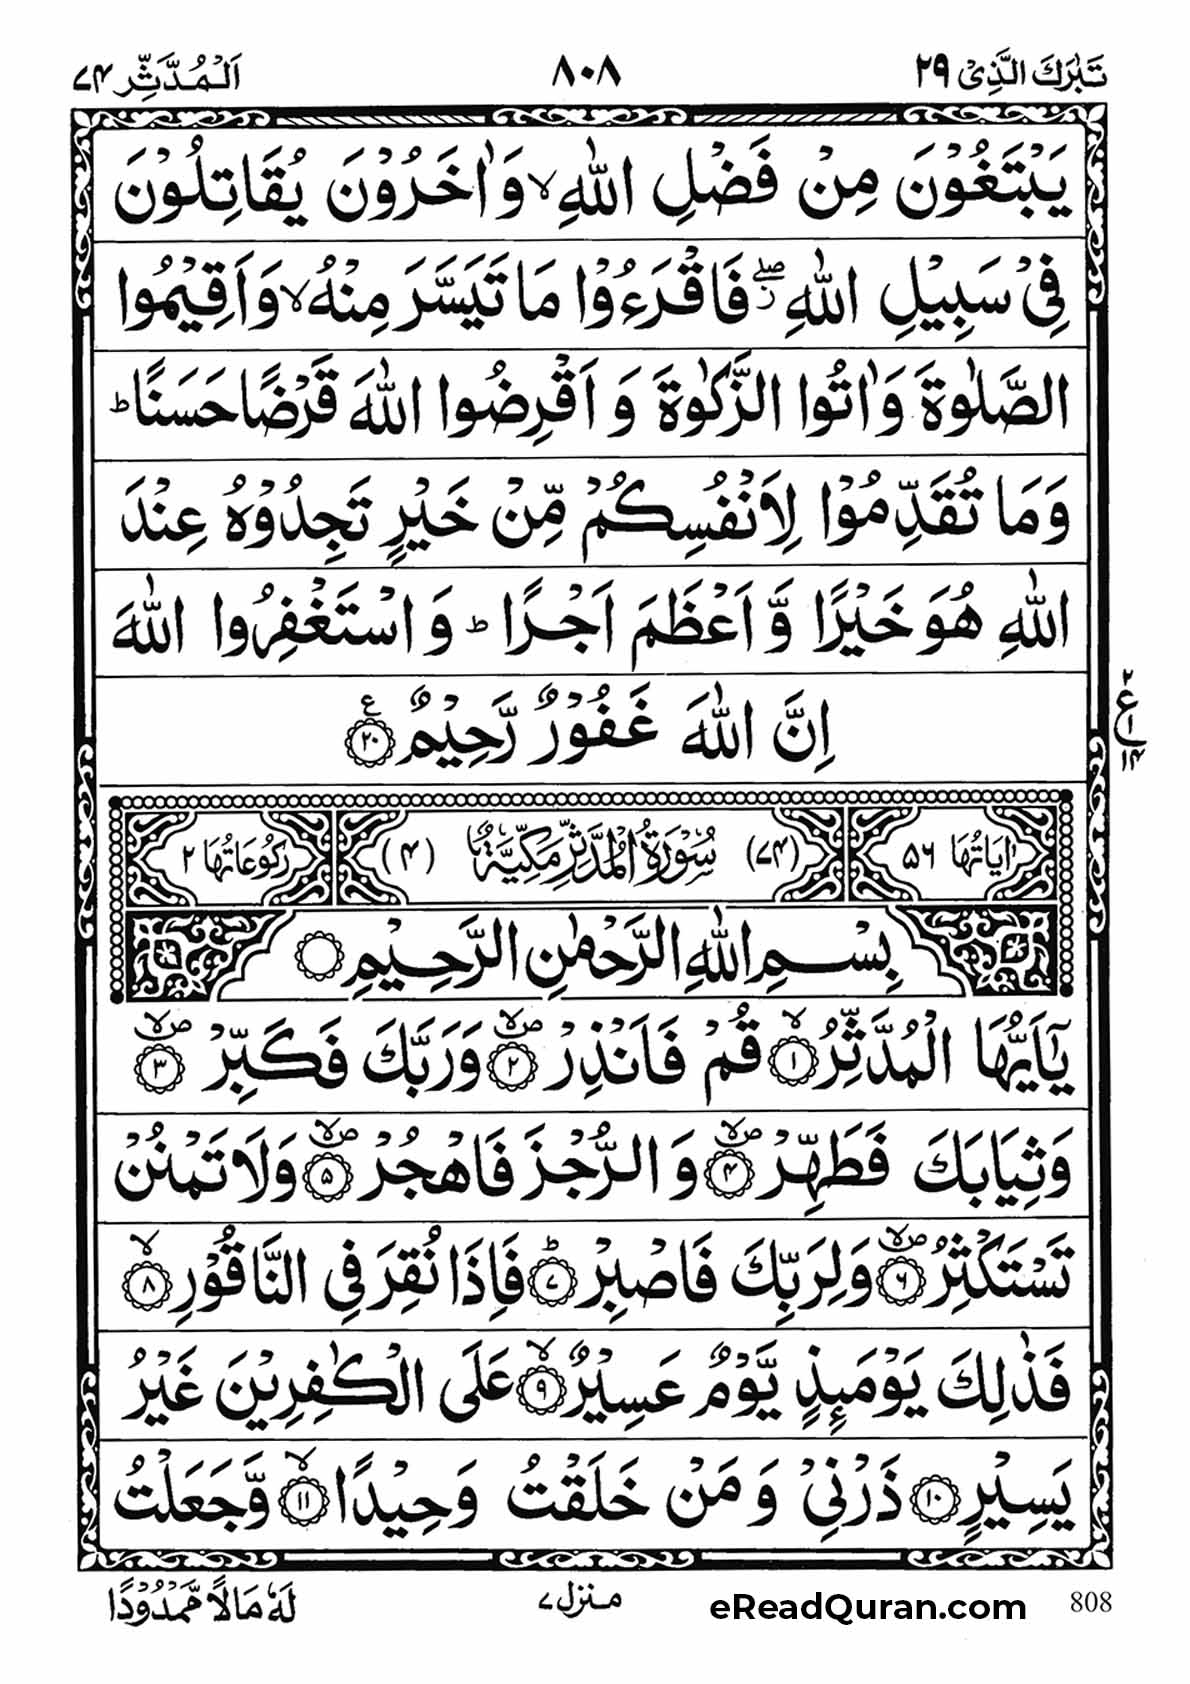 تَبٰرَكَ الَّذِىْ ٢٩ ٨٠٨ اَلْمُدَّثِّر ٧٤
يَبْتَغُوْنَ مِنْ فَضْلِ اللّٰهِ ۙ وَاٰخَرُوْنَ يُقَاتِلُوْنَ
فِىْ سَبِيْلِ اللّٰهِ ۖز فَاقْرَءُوْا مَا تَيَسَّرَ مِنْهُ ۙ وَاَقِيْمُوا
الصَّلٰوةَ وَاٰتُوا الزَّكٰوةَ وَ اَقْرِضُوا اللّٰهَ قَرْضًا حَسَنًا ؕ
وَمَا تُقَدِّمُوْا لِاَنْفُسِكُمْ مِّنْ خَيْرٍ تَجِدُوْهُ عِنْدَ
اللّٰهِ هُوَ خَيْرًا وَّ اَعْظَمَ اَجْرًا ؕ وَ اسْتَغْفِرُوا اللّٰهَ
اِنَّ اللّٰهَ غَفُوْرٌ رَّحِيْمٌ ۝٢٠ ع
٢ ع ١ ١٤
اٰيَاتُهَا ٥٦ (٧٤) سُوْرَةُ الْمُدَّثِّرِ مَكِّيَّةٌ (٤) رُكُوْعَاتُهَا ٢
بِسْمِ اللّٰهِ الرَّحْمٰنِ الرَّحِيْمِ ۝
يٰۤاَيُّهَا الْمُدَّثِّرُ ۙ‏۝١ قُمْ فَاَنْذِرْ ۙ۝٢ وَرَبَّكَ فَكَبِّرْ ۙ۝٣
وَثِيَابَكَ فَطَهِّرْ ۙ۝٤ وَ الرُّجْزَ فَاهْجُرْ ۙ۝٥ وَلَا تَمْنُنْ
تَسْتَكْثِرُ ۙ۝٦ وَلِرَبِّكَ فَاصْبِرْ ؕ۝٧ فَاِذَا نُقِرَ فِى النَّاقُوْرِ ۙ۝٨
فَذٰلِكَ يَوْمَئِذٍ يَّوْمٌ عَسِيْرٌ ۙ۝٩ عَلَى الْكٰفِرِيْنَ غَيْرُ
يَسِيْرٍ ۝١٠ ذَرْنِىْ وَ مَنْ خَلَقْتُ وَحِيْدًا ۙ۝١١ وَّجَعَلْتُ
لَهٗ مَالًا مَّمْدُوْدًا منزل ٧ eReadQuran.com 808